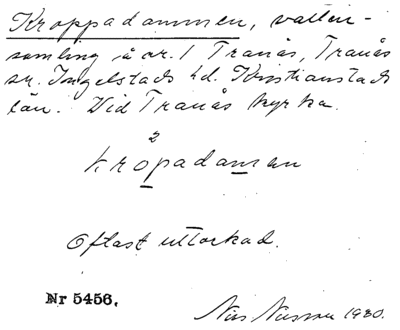 Kroppadammen, vatten-
samling å nr. 1 Tranås, Tranås
sn. Ingelstads hd. Kristianstads
län. Vid Tranås kyrka.
2
kròpadamen
Oftast uttorkad.
Nr 5456.
Nils Nilsson 1930.